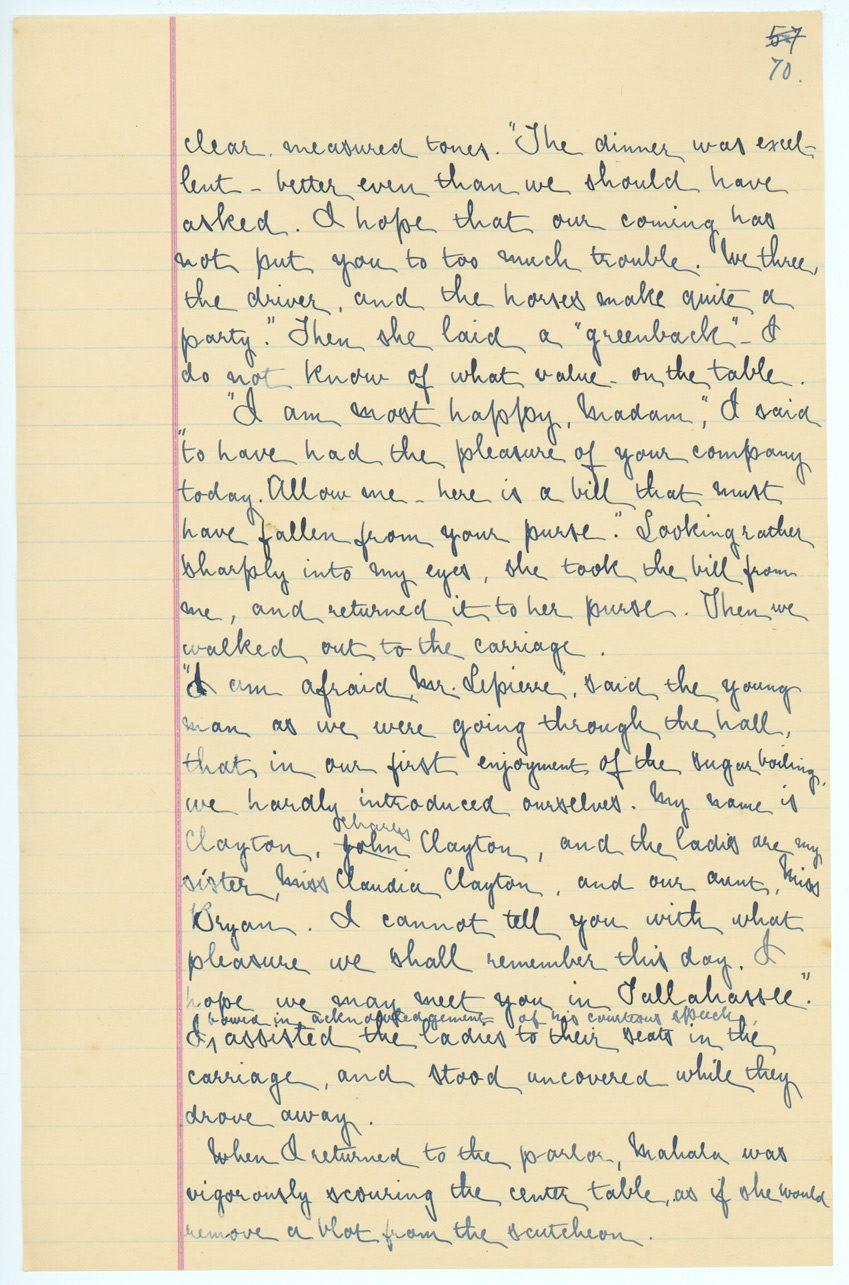 57
70.
clear, measured tones. "The dinner was excel-
lent - better even than we should have
asked. I hope that our coming has
not put you to too much trouble. We three,
the driver, and the horses make quite a
party." Then she laid a "greenback" - I
do not know of what value - on the table.
"I am most happy, Madam," I said
"to have had the pleasure of your company
today. Allow me - here is a bill that must
have fallen from your purse." Looking rather
sharply into my eyes, she took the bill from
me, and returned it to her purse. Then we
walked out to the carriage.
"I am afraid, Mr. Lepierre", said the young
man as we were going through the hall,
that in our first enjoyment of the sugar boiling,
we hardly introduced ourselves. My name is
Charles
Clayton, John Clayton, and the ladies are my
sister, Miss Claudia Clayton, and our aunt, Miss
Bryan. I cannot tell you with what
pleasure we shall remember this day. I
hope we may meet you in Tallahassee".
bowed in acknowledgement of his courteous speech,
I assisted the ladies to their seats in the
carriage, and stood uncovered while they
drove away.
When I returned to the parlor, Mahala was
vigorously scouring the center table, as if she would
remove a blot from the scutcheon.